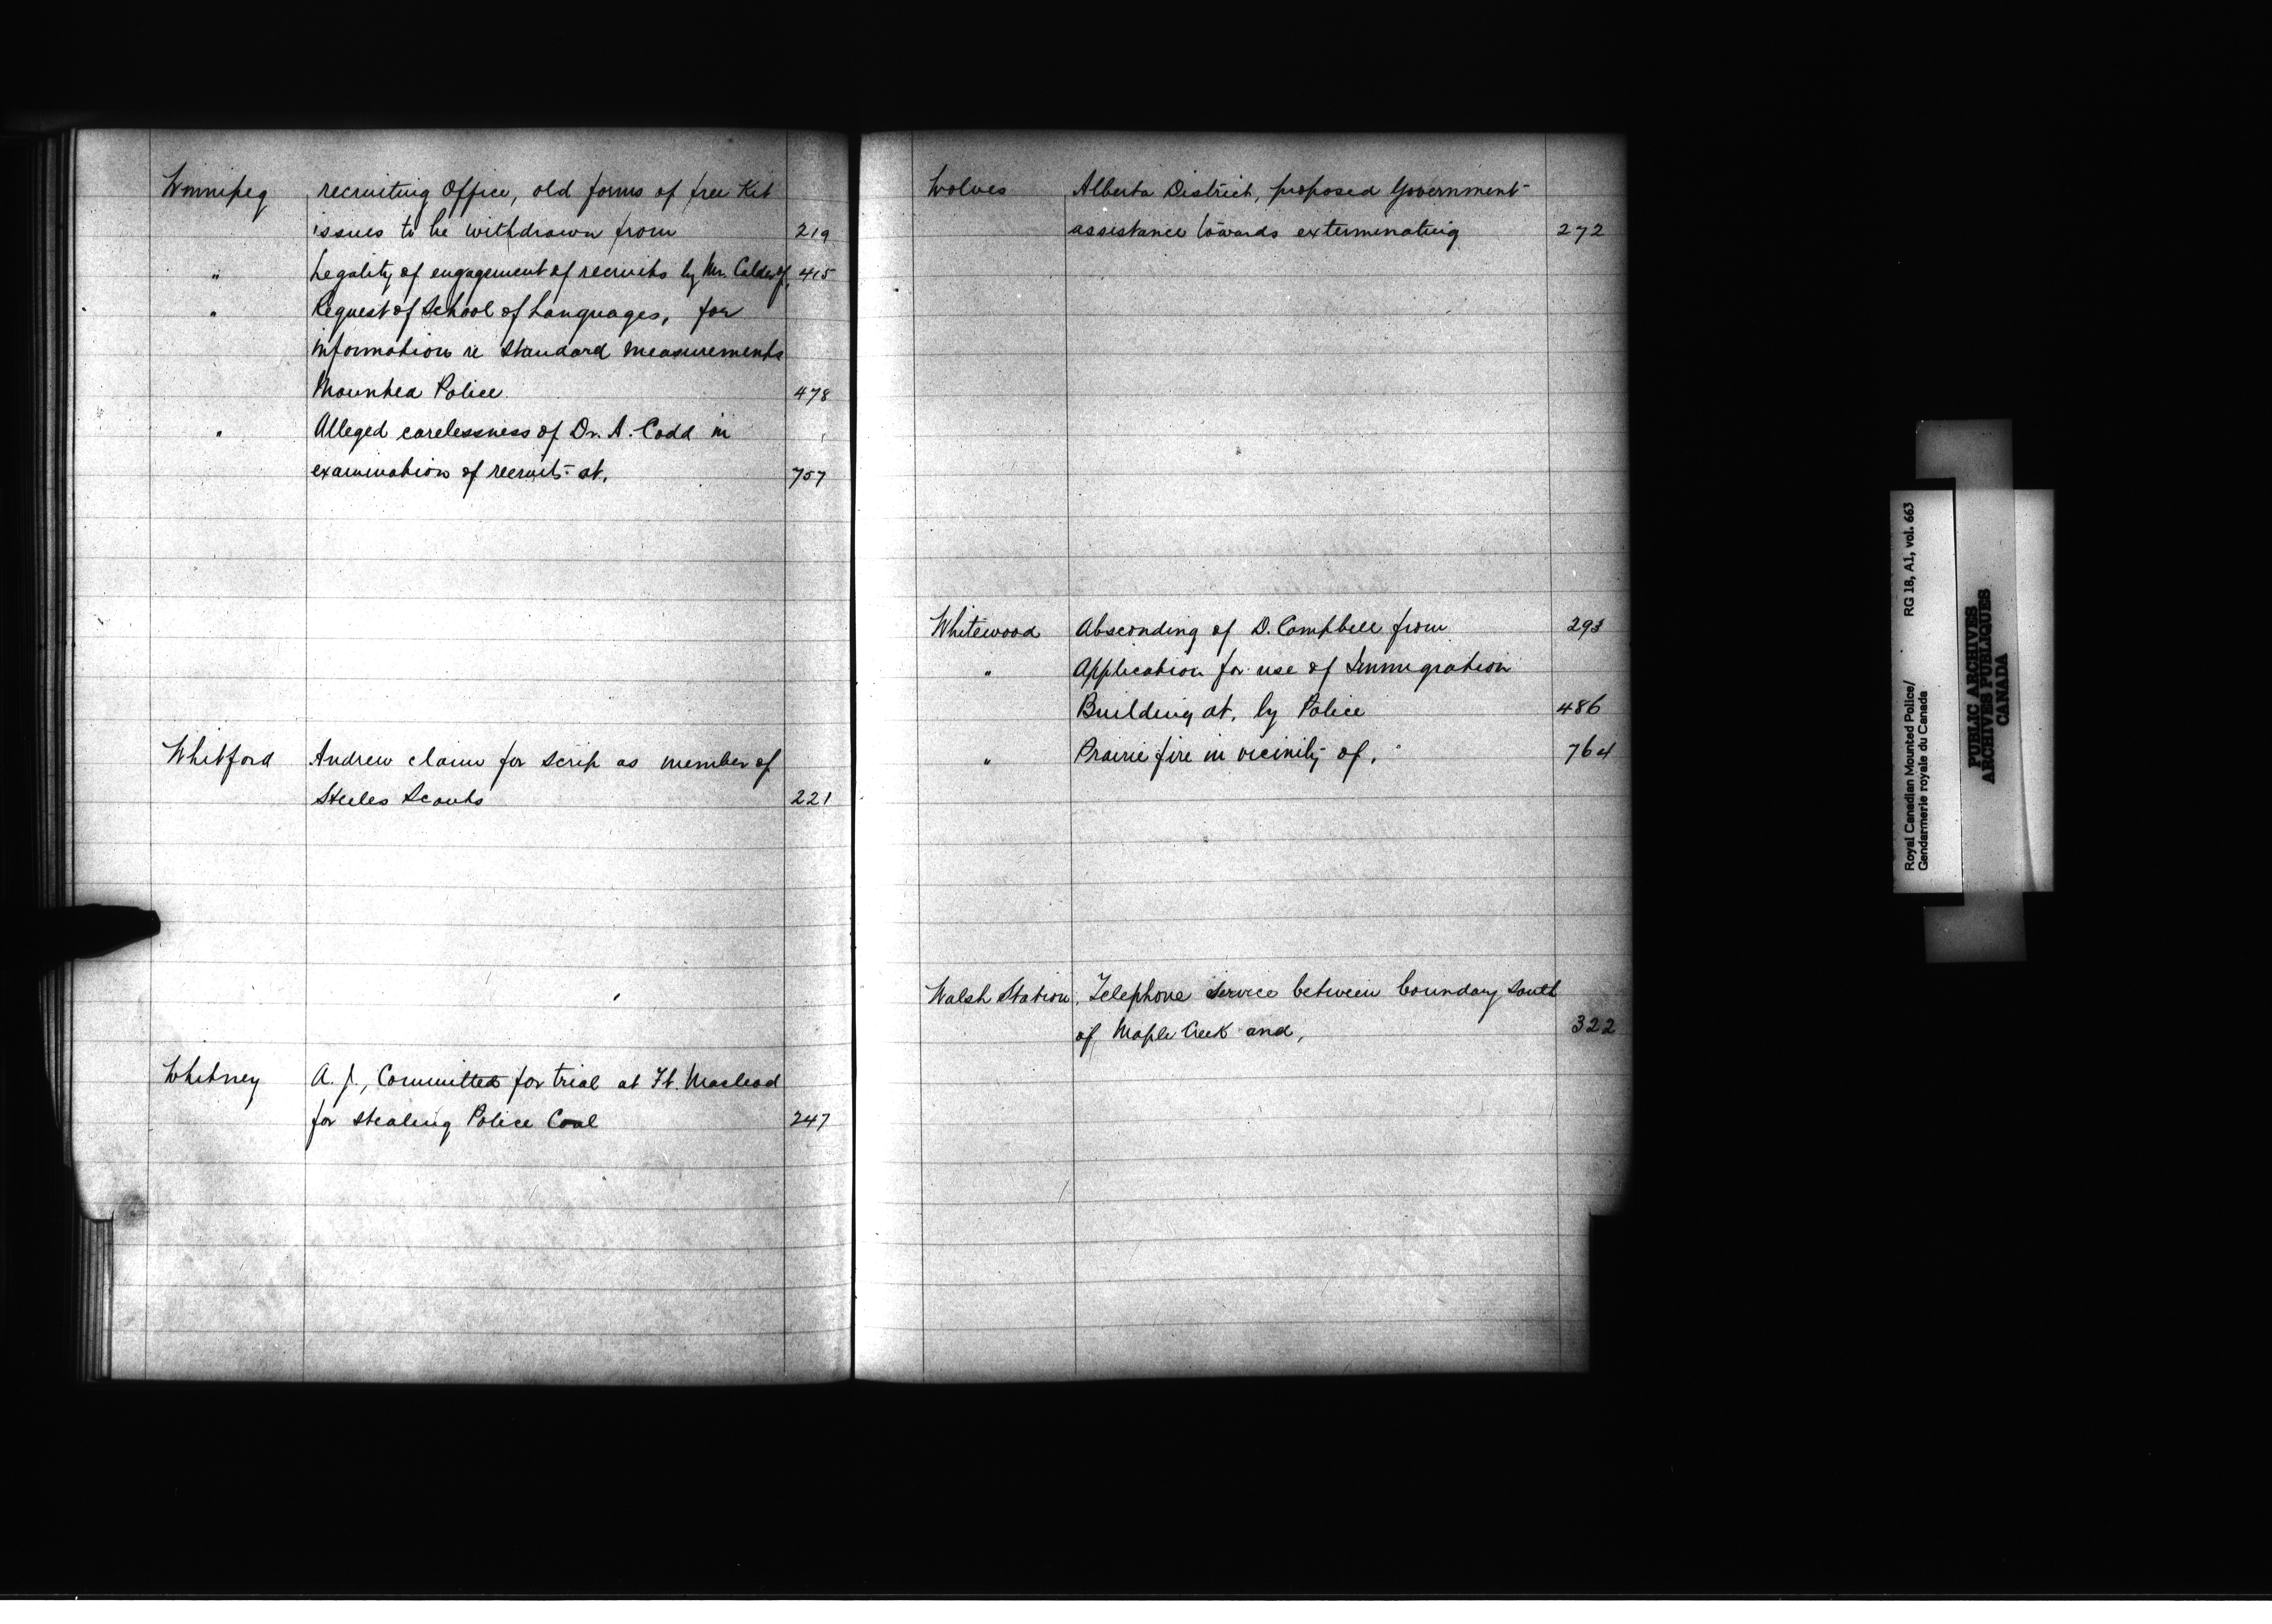 Winnipeg recruiting Office, old forms of free Kit
issues to be withdrawn from 219
" Legality of engagement of recruits by Mr. Calder of, 415
" Request of School of Languages, for
information re Standard Measurements
Mounted Police 478
" Alleged carelessness of Dr. A. Codd in
examination of recruits at, 757
Whitford Andrew claim for scrip as member of
Steeles Scouts 221
Whitney A. J., Committed for trial at Ft. Macleod
for stealing Police Coal 247
Wolves Alberta District, proposed Government
assistance towards exterminating 272
Whitewood Absconding of D. Campbell from 293
" Application for use of Immigration
Building at, by Police 486
" Prairie fire in vicinity of, 764
Walsh Station, Telephone service between boundary south
of Maple Creek and, 322
Royal Canadian Mounted Police/ RG 18, A1, vol. 663
Gendarmerie royale du Canada
PUBLIC ARCHIVES
ARCHIVES PUBLIQUES
CANADA